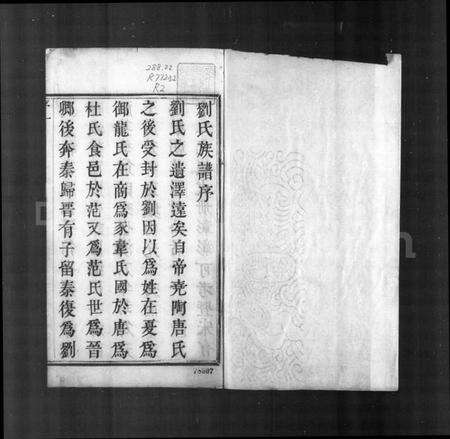 劉氏族譜序
劉氏之遺澤遠矣自帝堯陶唐氏
之後受封於劉因以爲姓在夏爲
御龍氏在商爲豕韋氏國於唐爲
杜氏食邑於范又爲范氏世爲晉
卿後奔秦歸晉有子留秦復爲劉
288.22
R2